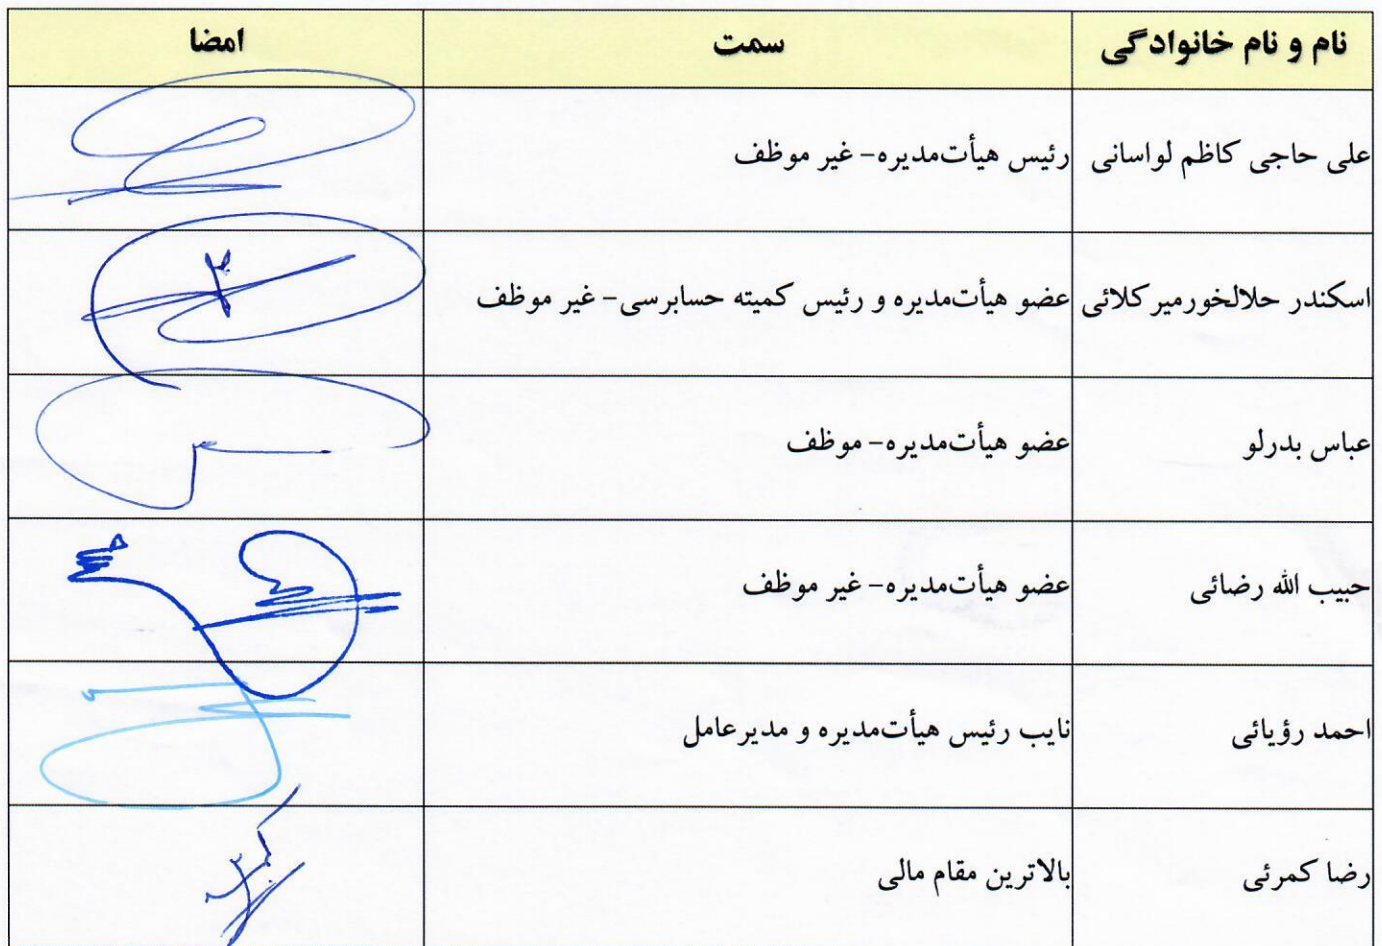 نام و نام خانوادگی سمت امضا
علی حاجی کاظم لواسانی رئیس هیأت‌مدیره- غیر موظف
اسکندر حلالخورمیرکلائی عضو هیأت‌مدیره و رئیس کمیته حسابرسی- غیر موظف
عباس بدرلو عضو هیأت‌مدیره- موظف
حبیب الله رضائی عضو هیأت‌مدیره- غیر موظف
احمد رؤیائی نایب رئیس هیأت‌مدیره و مدیرعامل
رضا کمرئی بالاترین مقام مالی